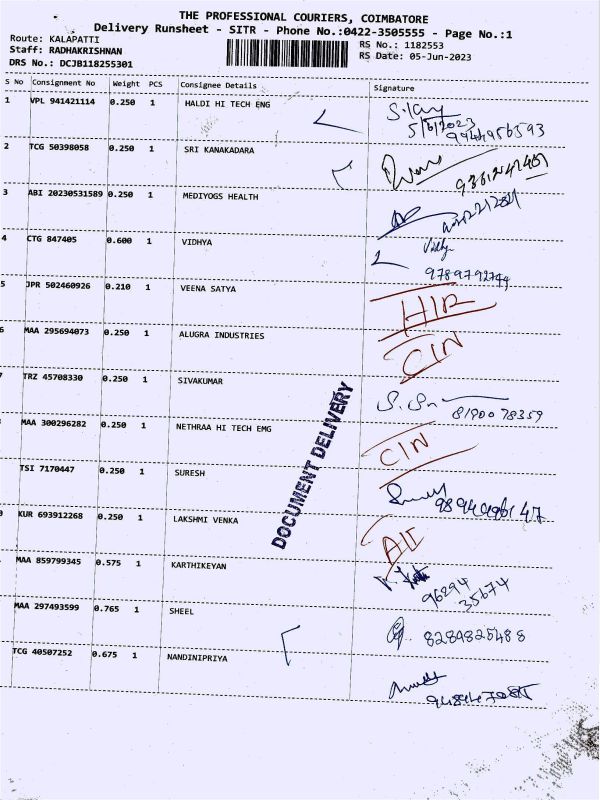 THE PROFESSIONAL COURIERS, COIMBATORE
Delivery Runsheet - SITR - Phone No.:0422-3505555 - Page No.:1
Route: KALAPATTI
RS No.: 1182553
Staff: RADHAKRISHNAN
RS Date: 05-Jun-2023
DRS No.: DCJB118255301
S No Consignment No Weight PCS Consignee Details Signature
1 VPL 941421114 0.250 1 HALDI HI TECH ENG
5/6/2023
2 TCG 50398058 0.250 1 SRI KANAKADARA
3 ABI 20230531589 0.250 1 MEDIYOGS HEALTH
4 CTG 847405 0.600 1 VIDHYA
9789792749
5 JPR 502460926 0.210 1 VEENA SATYA
6 MAA 295694073 0.250 1 ALUGRA INDUSTRIES
CIN
7 TRZ 45708330 0.250 1 SIVAKUMAR
8190078359
MAA 300296282 0.250 1 NETHRAA HI TECH EMG
CIN
TSI 7170447 0.250 1 SURESH
KUR 693912268 0.250 1 LAKSHMI VENKA
MAA 859799345 0.575 1 KARTHIKEYAN
96294
35674
MAA 297493599 0.765 1 SHEEL
8284825488
TCG 40507252 0.675 1 NANDINIPRIYA
DOCUMENT DELIVERY